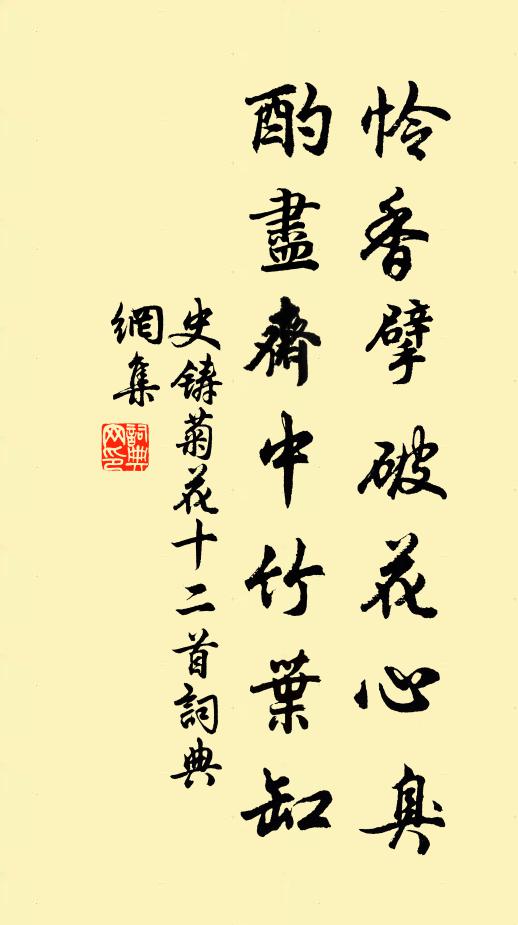 怜香擘破花心臭
酌盡齋中竹葉缸
史鑄菊花十二首詞典
網集
詞典
网印